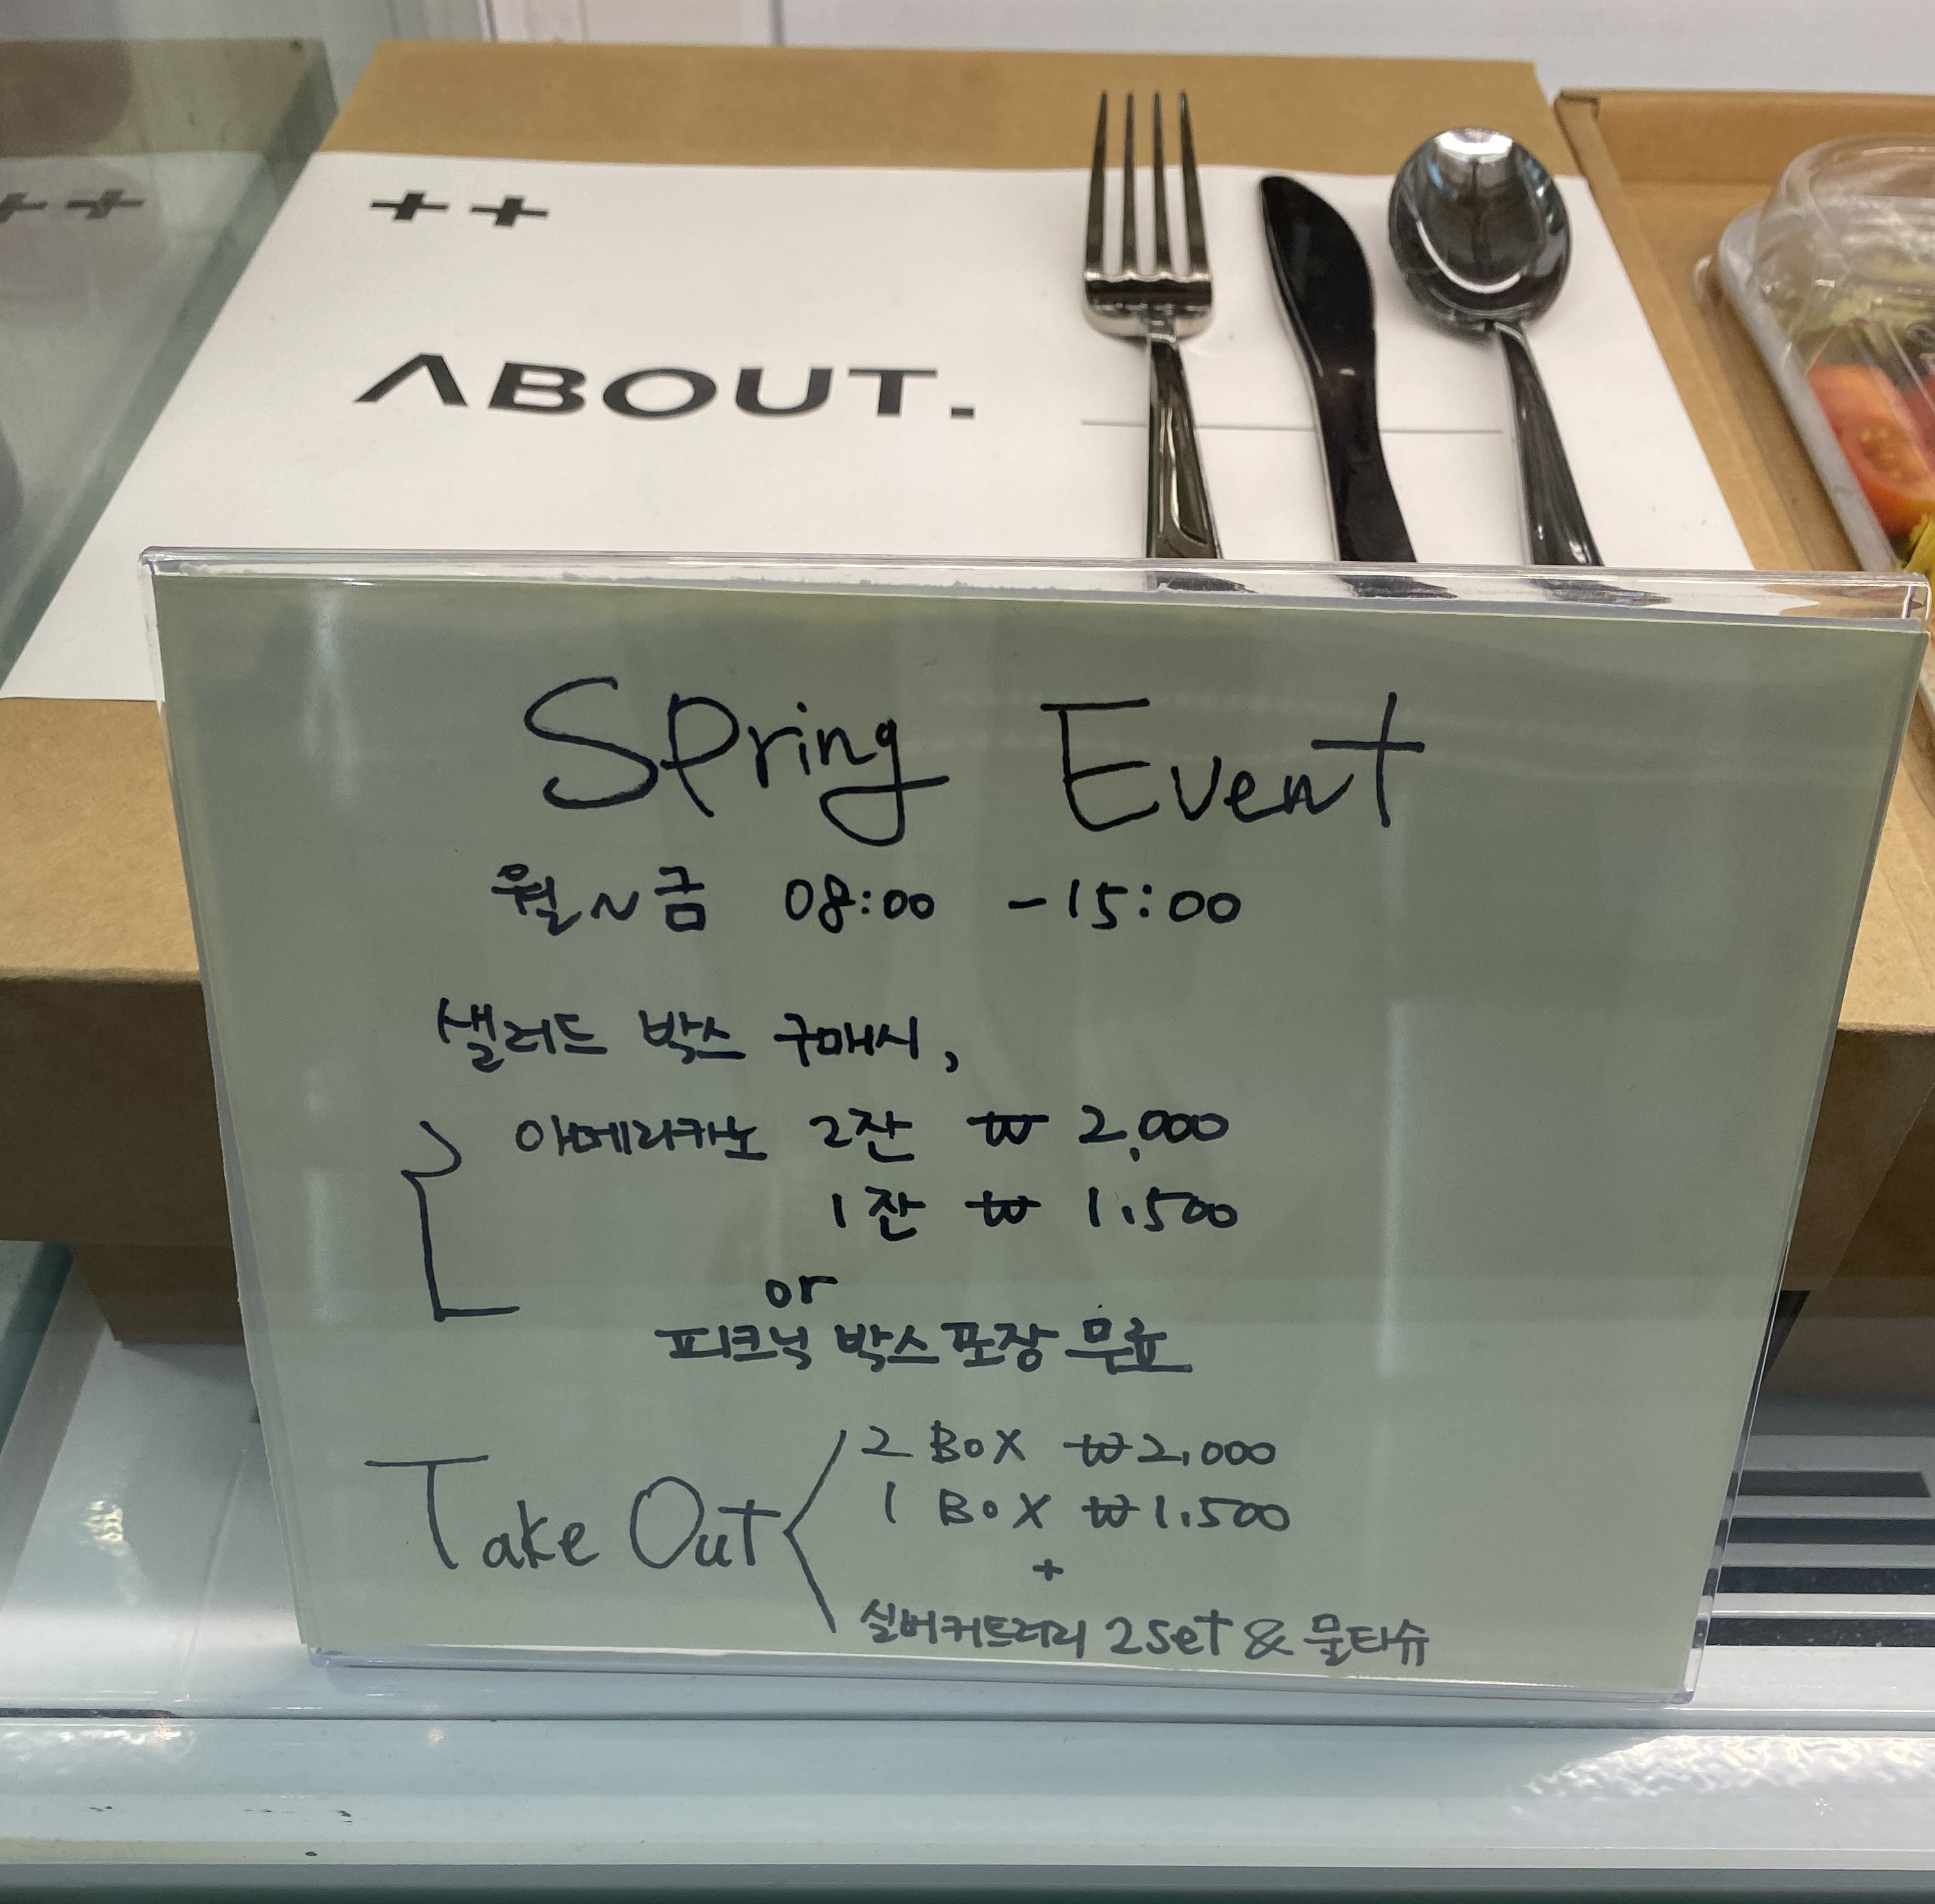 ++
ABOUT.
Spring Event
월~금 08:00 -15:00
샐러드 박스 구매시,
아메리카노 2잔 ₩ 2,000
1잔 ₩ 1.500
or
피크닉 박스 포장 무료
2 BOX ₩2,000
Take Out
1 BOX ₩1.500
+
실버커트러리 2set & 물티슈